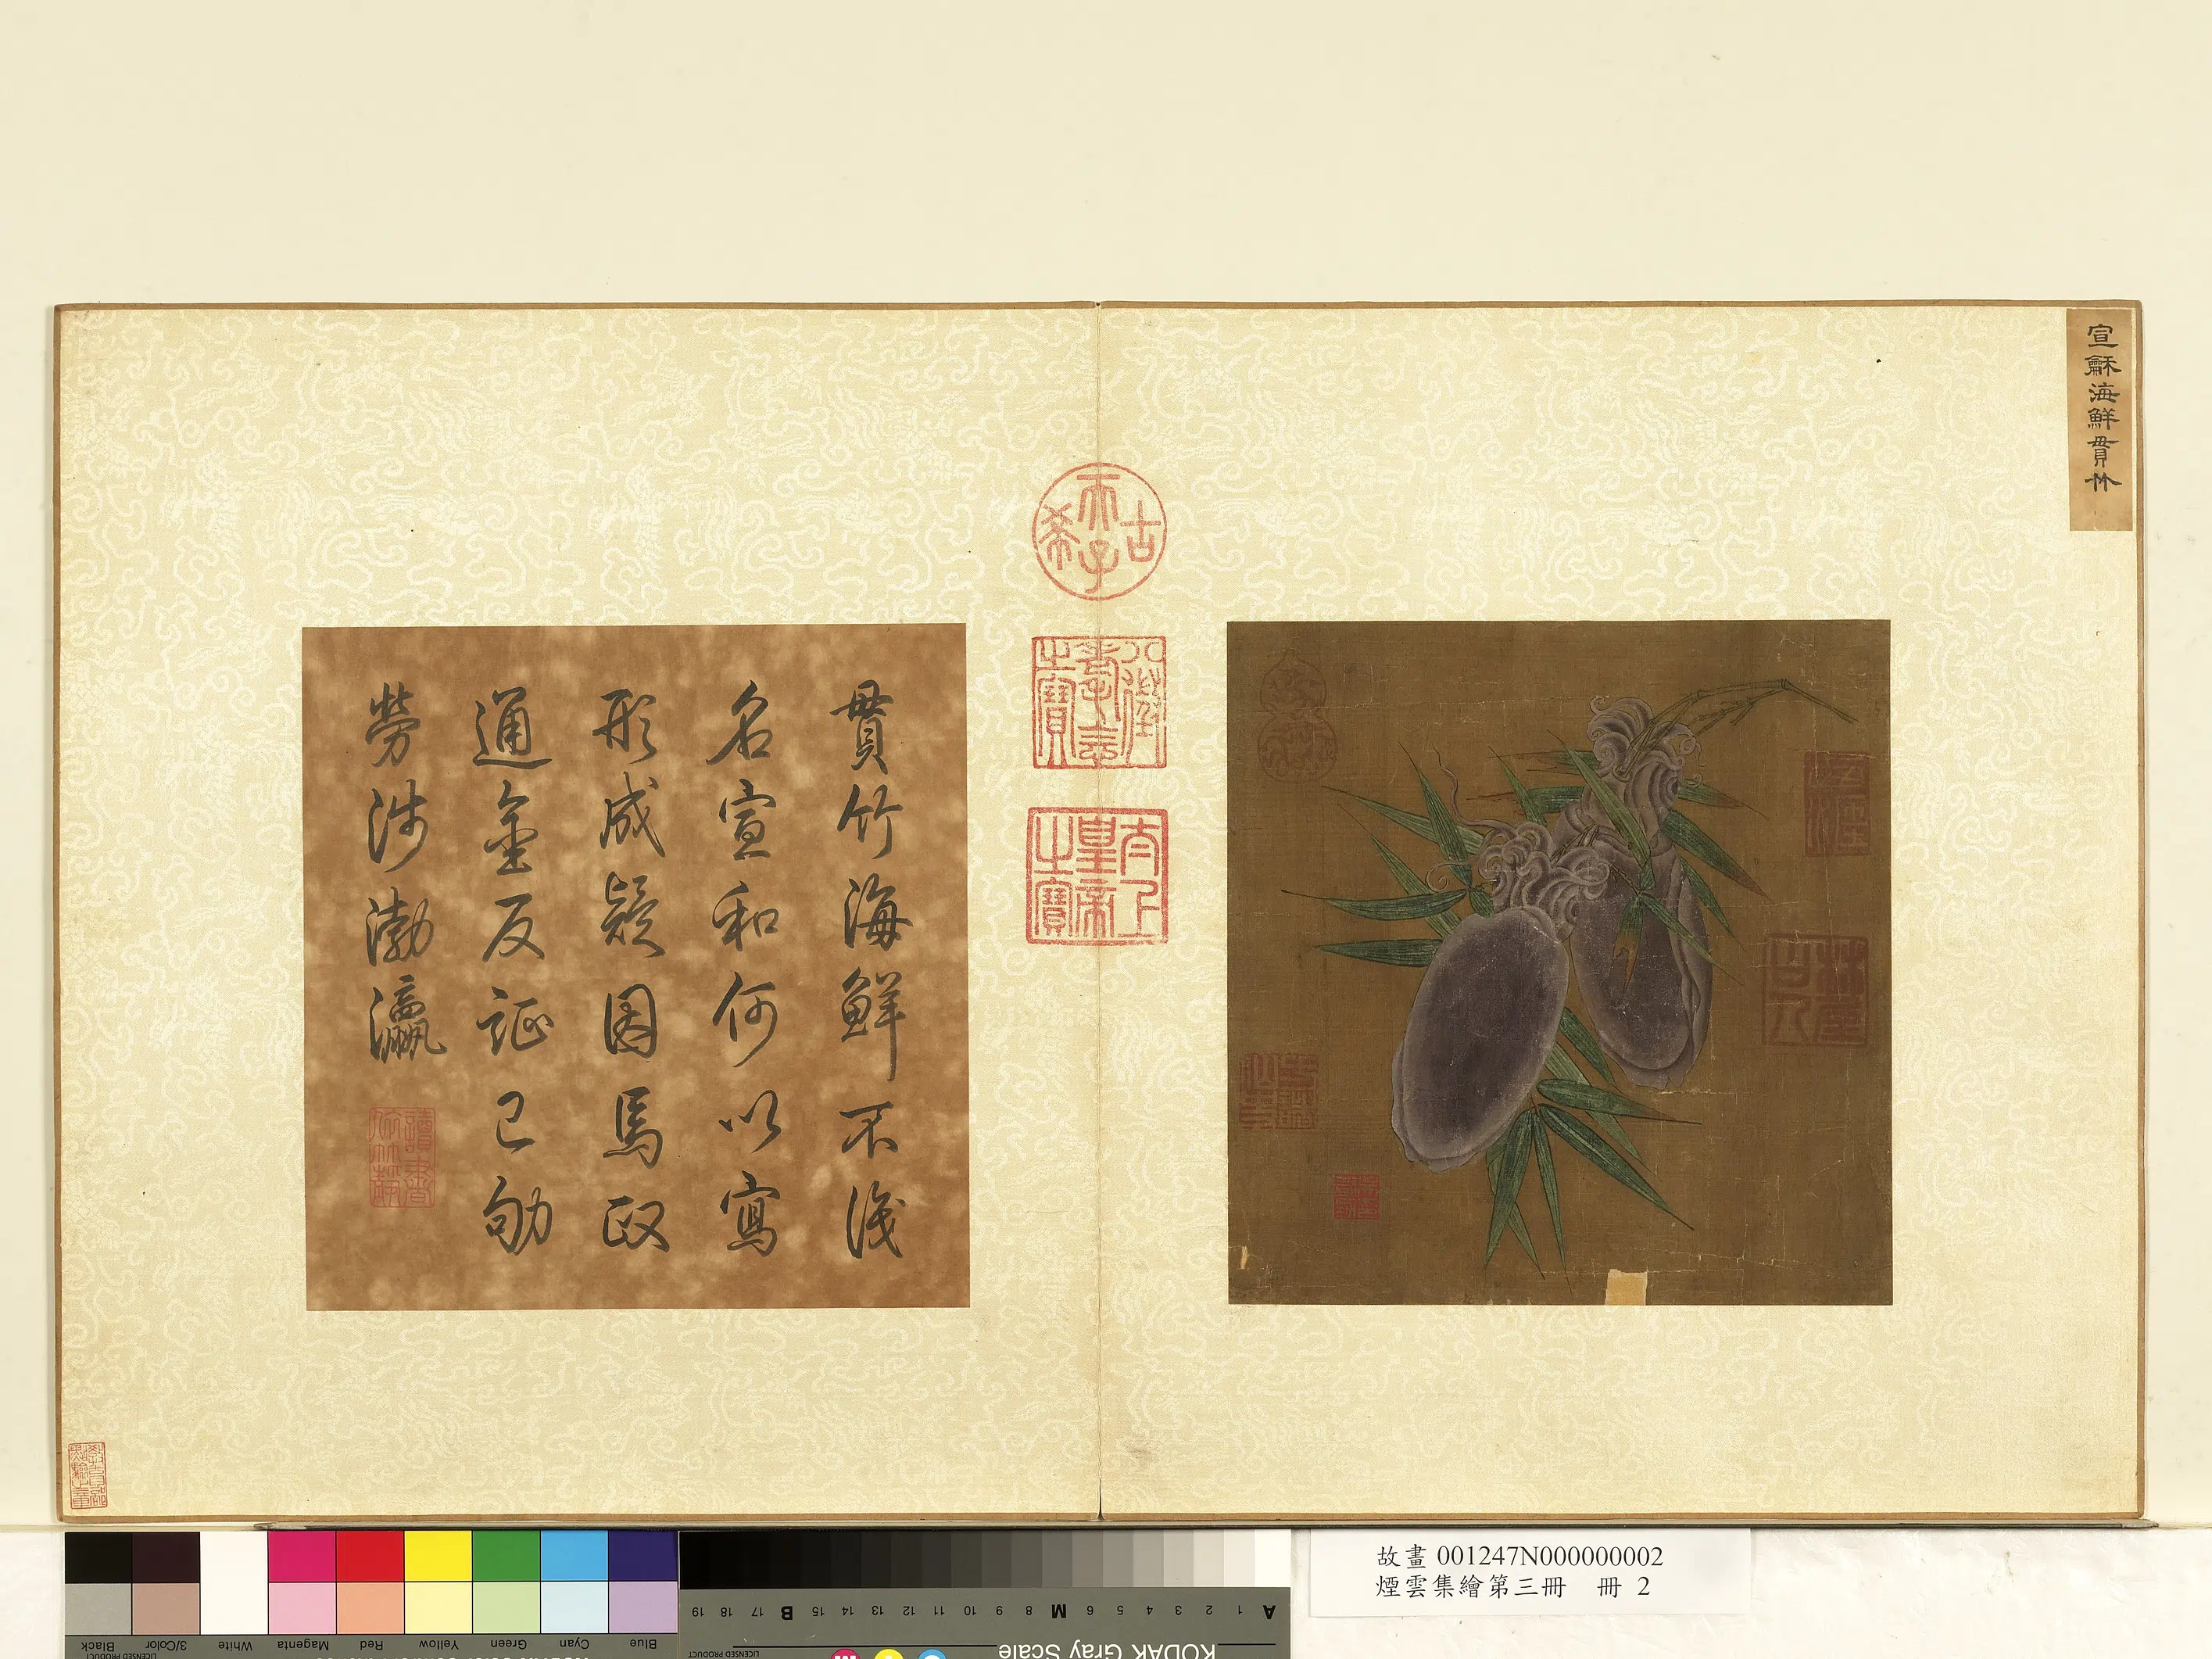 宣龢海鮮貫竹
古
希
天子
八徵
耄念
之寶
太上
皇帝
之寶
貫竹海鮮不淺
名宣和何以寫
形成疑因馬政
通金反証已劬
勞涉渤瀛
故畫 001247N000000002
煙雲集繪第三冊 冊 2
Black
3/Color
White
Magenta
Red
Yellow
Green
Cyan
Blue
LICENSED PRODUCT
KODAK Gray Scale
LICENSED PRODUCT
A 1 2 3 4 5 6 M 8 9 10 11 12 13 14 15 B 17 18 19